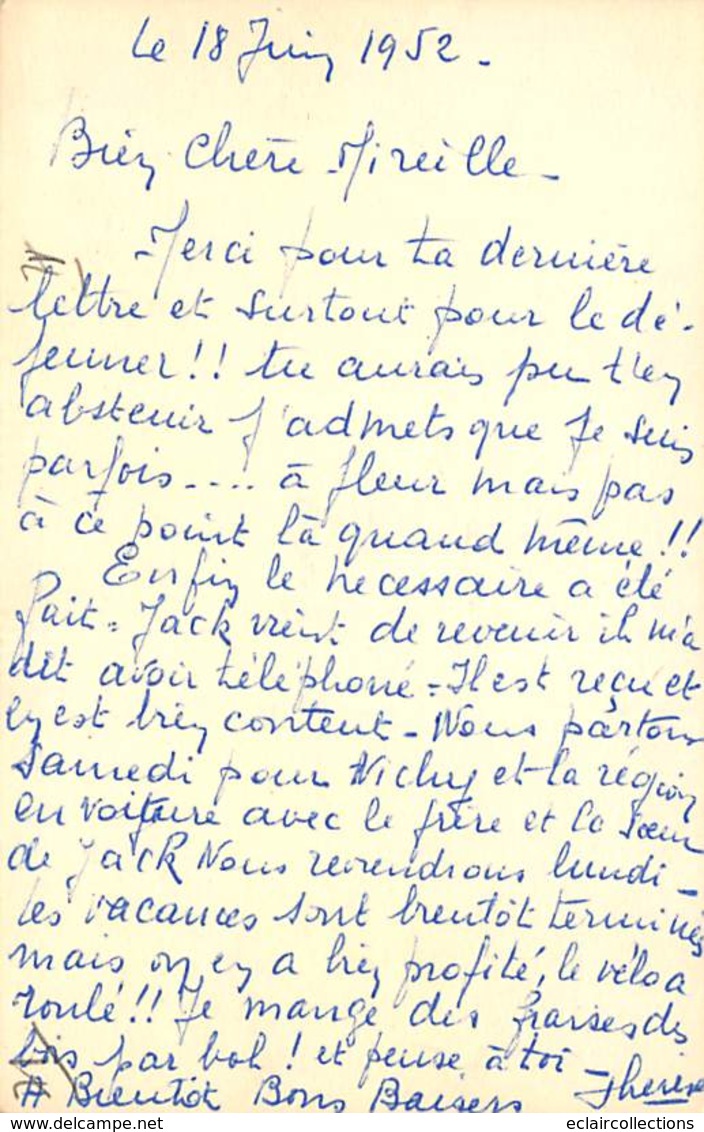 Le 18 Juin 1952.
Bien chère Mireille.
Merci pour ta dernière
lettre et surtout pour le dé-
jeuner!! tu aurais pu t'en
abstenir J'admets que je suis
parfois.... à fleur mais pas
à ce point là quand même!!
Enfin le nécessaire a été
fait. Jack vient de revenir il m'a
dit avoir téléphoné. Il est reçu et
en est bien content. Nous partons
samedi pour Vichy et la région
en voiture avec le frère et la soeur
de Jack Nous reviendrons lundi -
les vacances sont bientôt terminées
mais on en a bien profité, le vélo a
roulé!! Je mange des fraises des
bois par bol! et pense à toi -
A Bientôt Bons Baisers Thérèse
eclaircollections
eclaircollections
delcampe.net